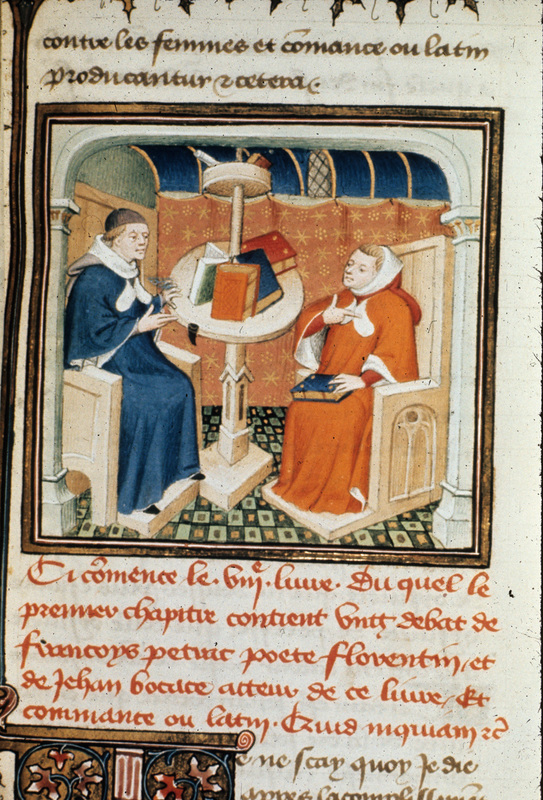 contre les femmes et cōmance ou latin
Producantur & cetera.
Ci cōmence le .viij.e liure. Du quel le
premier chapitre contient vng debat de
francoys petrac poete florentin, et
de Jehan bocace acteur de ce liure, Et
commance ou latin. Quid inquiam &c̄
e ne scay quoy Je die